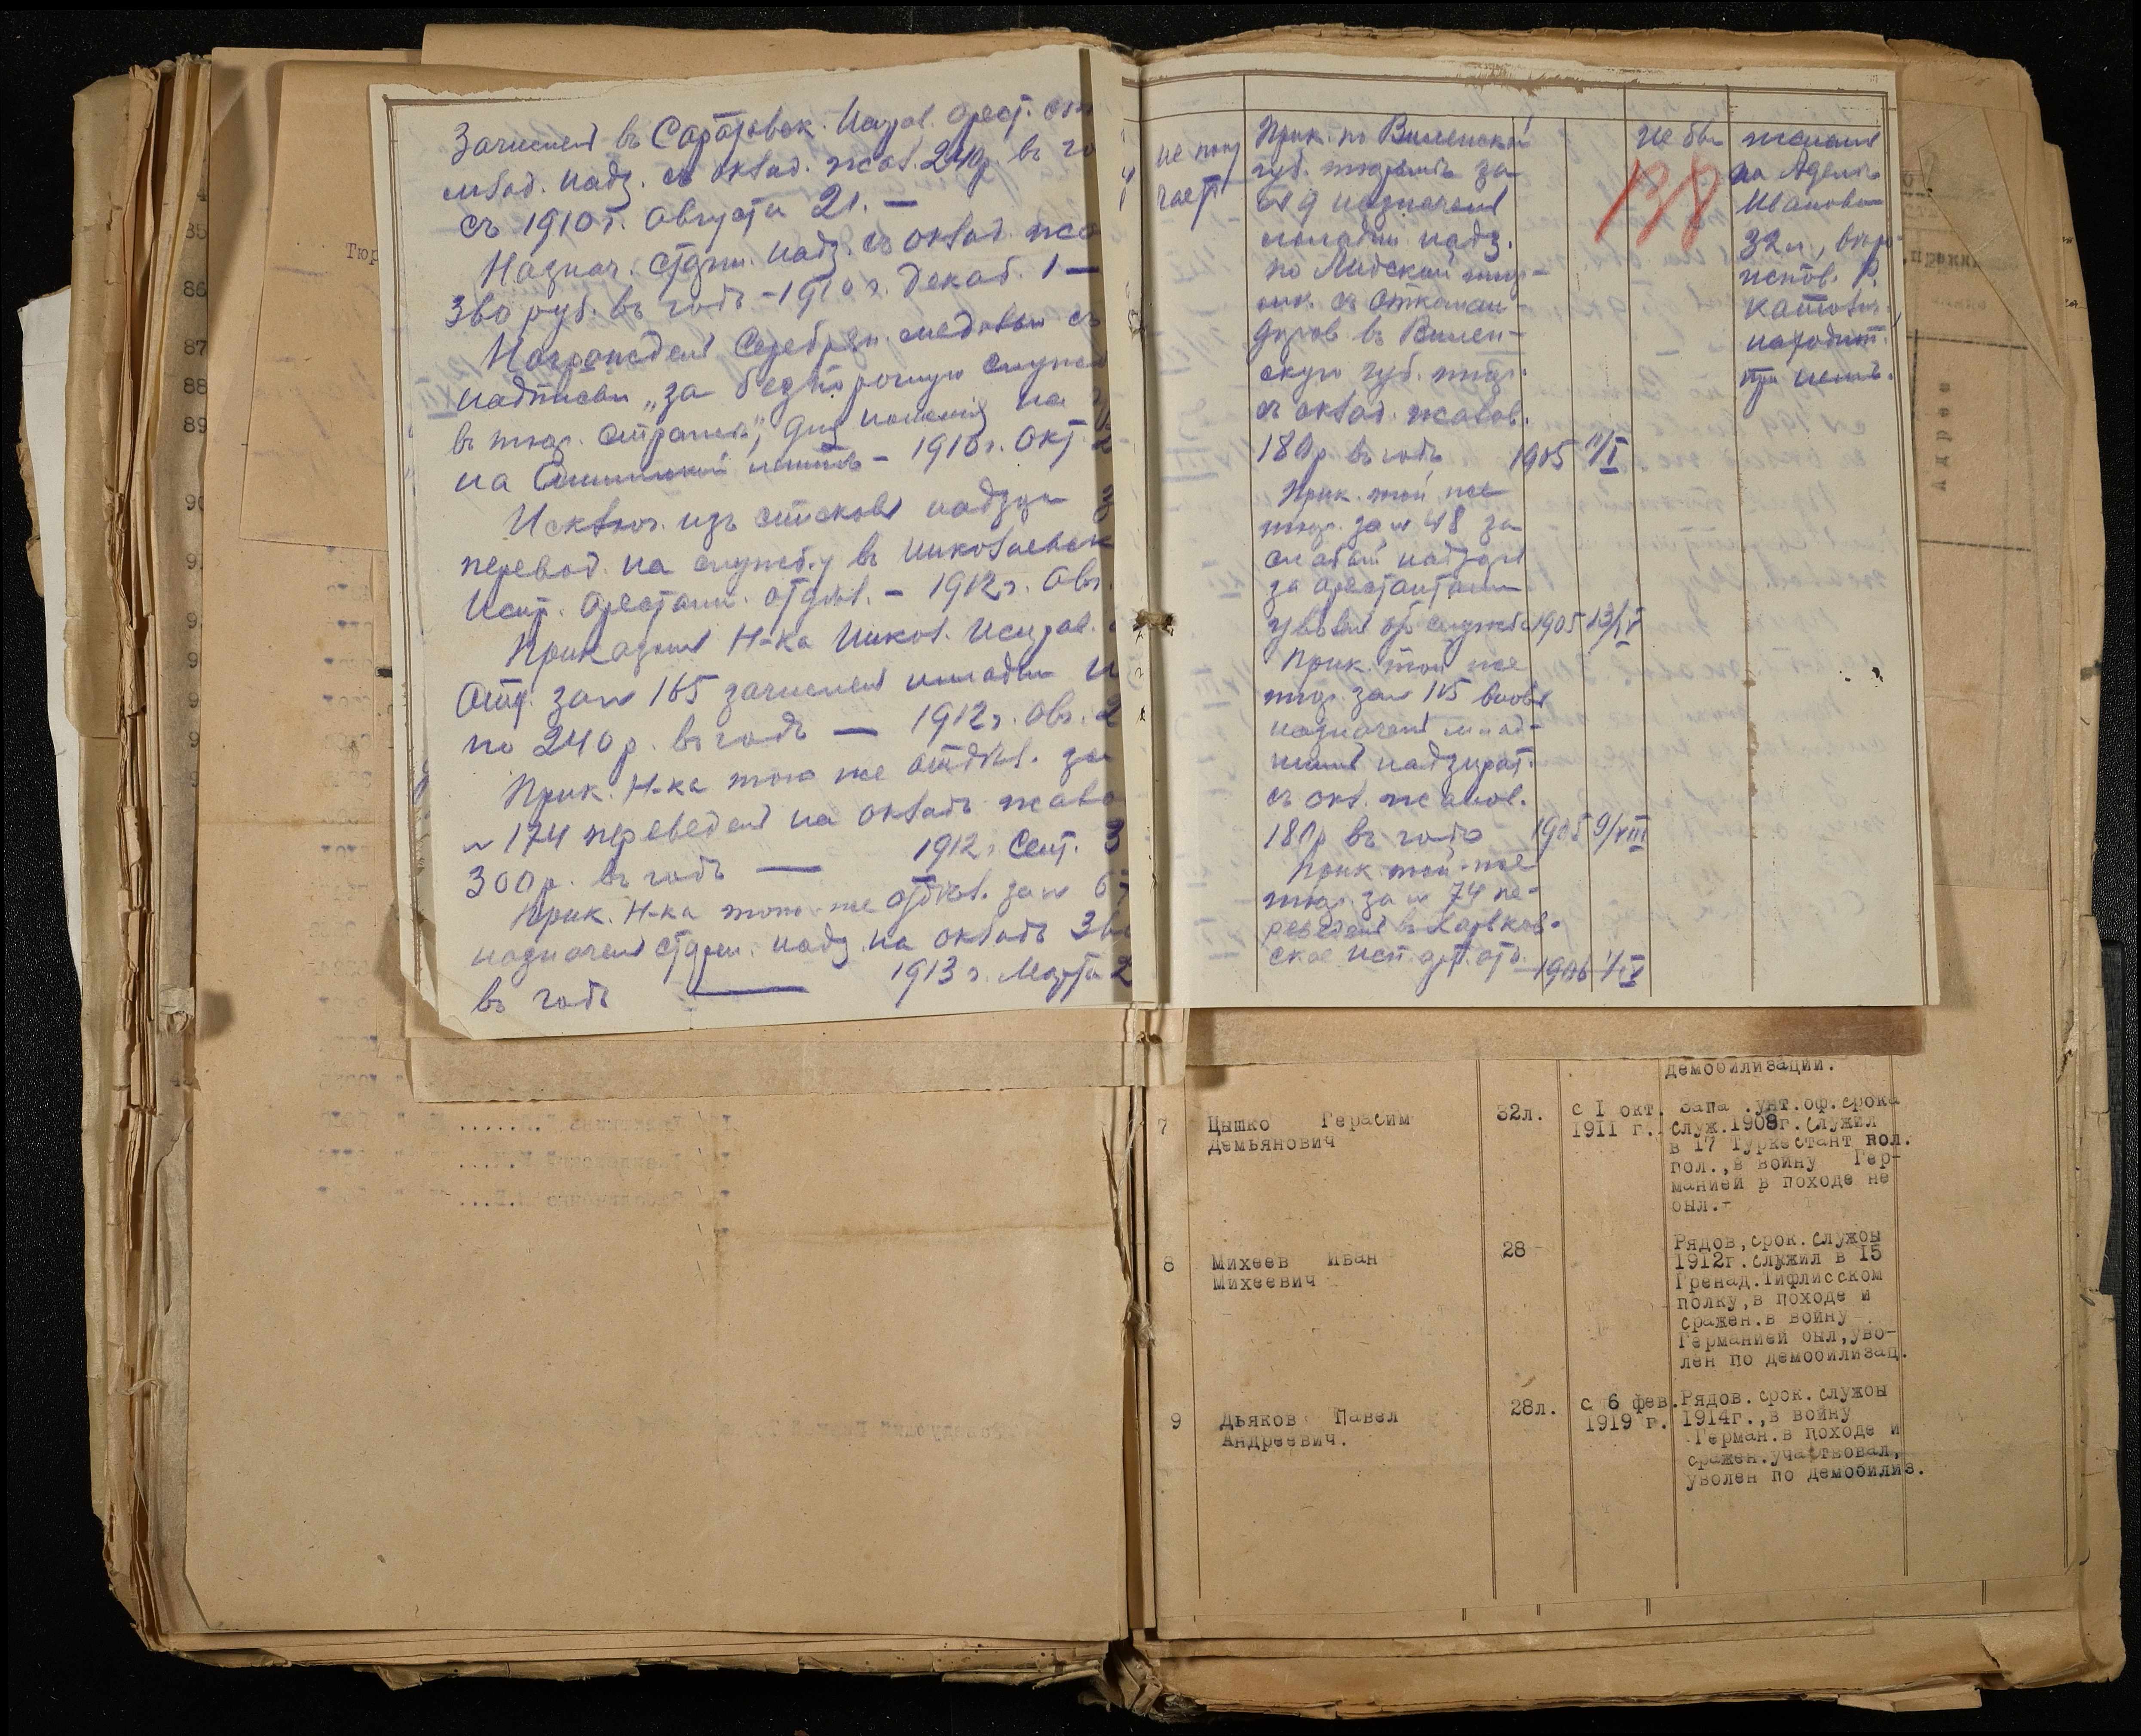 Зачислен въ Саратовск. Исправ. Арест. отд
млад. надз. съ оклад. жал. 240р. въ го
съ 1910 г. Августа 21. —
Назнач. старш. надз. съ оклад. жа
360 руб. въ годъ - 1910 г. Декаб. 1 —
Награжденъ Серебрян. медалью съ
надписью „за безпорочную службу
въ тюр. стражѣ", для ношенія на
на Аннинской лентѣ - 1910 г. Окт.
Исключ. изъ списковъ надзир
перевод. на службу въ Николаевск
Испр. Арестант. отдѣл. - 1912 г. Авг.
Приказомъ Н-ка Никол. Исправ.
Отд. за № 165 зачисленъ младш
по 240 р. въ годъ — 1912 г. Авг. 2
Прик. Н-ка того же отдѣл. за
№ 174 переведенъ на окладъ жало
300 р. въ годъ — 1912 г. Сент. 3
Прик. Н-ка того же отдѣл. за № 67
назначенъ старш. надз. на окладъ 360
въ годъ — 1913 г. Марта 2
Тюр
85
86
87
88
89
90
не полу
чаетъ
Прик. по Виленской
губ. тюрьмѣ за
№ 9 назначенъ
младш. надз.
по Лидской тюр-
съ откоман-
диров. въ Вилен-
скую губ. тюр.
съ оклад. жалов.
180 р. въ годъ 1905 11/I
Прик. той же
тюр. за № 48 за
слабый надзоръ
за арестантами
уволенъ отъ службы 1905 13/IV
Прик. той же
тюр. за № 115 вновь
назначенъ млад-
шимъ надзират.
съ окл. жалов.
180 р въ годъ 1905 9/VIII
Прик той-же
тюр. за № 74 пе-
реведенъ въ Харьков-
ское исп. арт. отд. 1906 1/IV
не былъ
138
женатъ
на Аделѣ
Ивановнѣ
32 л., вѣро-
испов. Р.
католич.,
находит.
при немъ.
демобилизации.
7 Цышко Герасим
Демьянович
32л.
с I окт.
1911 г.
Запа .унт.оф.срока
служ.1908г.служил
в 17 Туркестант пол.
пол.,в войну Гер-
манией в походе не
был.-
8 Михеев Иван
Михеевич
28
Рядов,срок.службы
1912г.служил в 15
Гренад.Тифлисском
полку,в походе и
сражен.в войну
Германией был,уво-
лен по демобилизац.
9 Дьяков Павел
Андреевич.
28л.
с 6 фев.
1919 г.
Рядов. срок.службы
1914г.,в войну
Герман.в походе и
сражен.участвовал,
уволен по демобилиз.